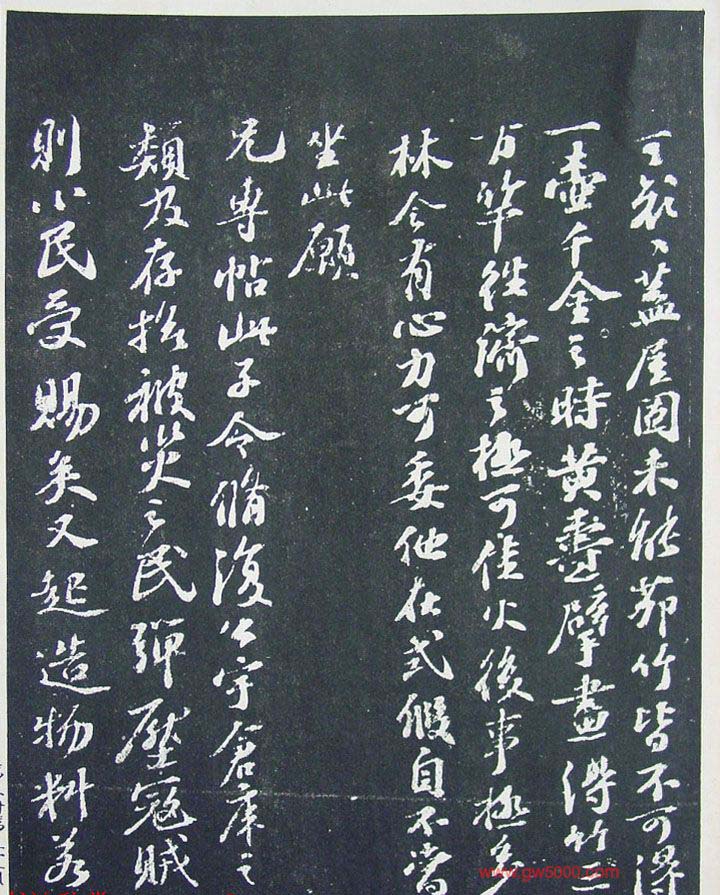 蓋屋固未能茆竹皆不可得
一壺千金之時黃壽擘畫得竹三
万竿往濟之極可佳火後事極多
林令有心力可委他在式假自不當
坐此願
兄專帖此子令脩復公宇倉庫之
類及存拯被災之民彈壓寇賊
則小民受賜矣又起造物料若
www.gw5000.com